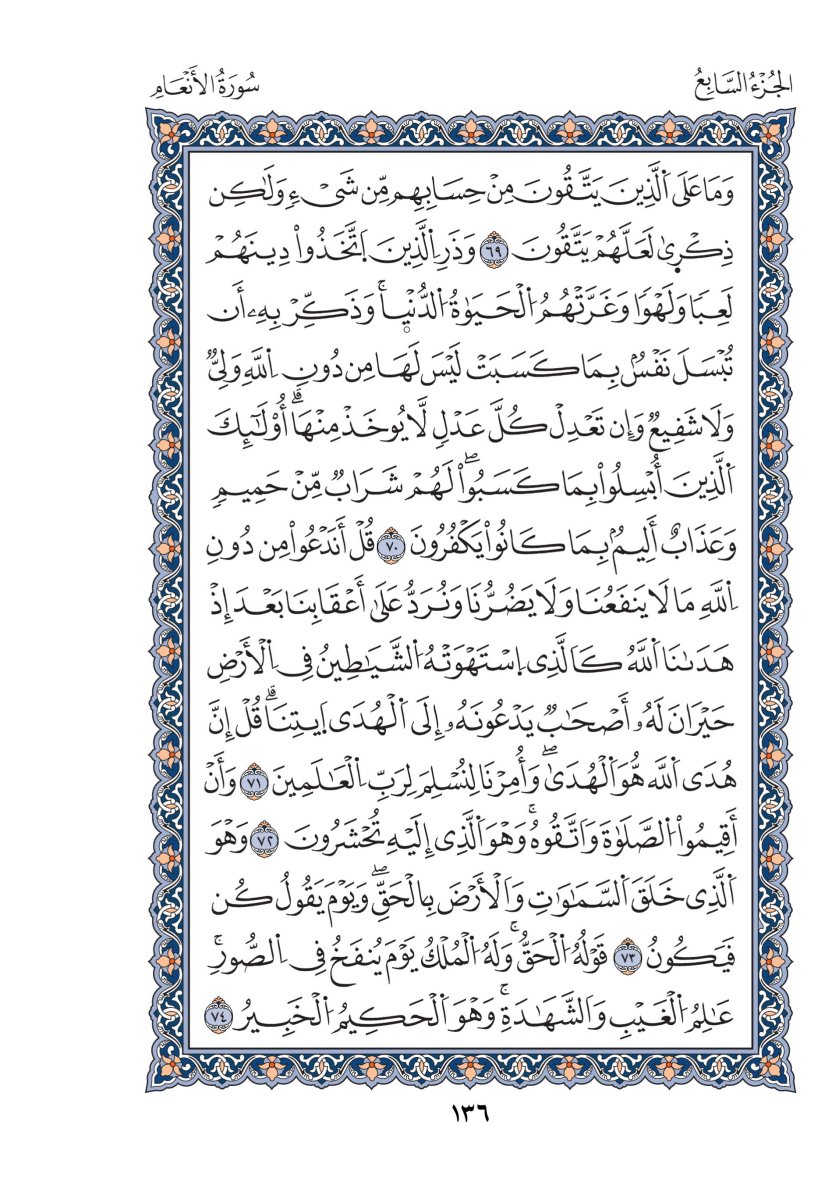 الجُزْءُ السَّابِعُ
سُورَةُ الأَنْعَامِ
وَمَا عَلَى اَ۬لذِينَ يَتَّقُونَ مِنْ حِسَابِهِم مِّن شَےْءٖ وَلَٰكِن
ذِكْر۪ىٰ لَعَلَّهُمْ يَتَّقُونَ ٦٩ وَذَرِ اِ۬لَّذِينَ اَ۪تَّخَذُواْ دِينَهُمْ
لَعِبٗا وَلَهْوٗا وَغَرَّتْهُمُ اُ۬لْحَيَوٰةُ اُ۬لدُّنْي۪اۚ وَذَكِّرْ بِهِۦٓ أَن
تُبْسَلَ نَفْسُۢ بِمَا كَسَبَتْ لَيْسَ لَهَا مِن دُونِ اِ۬للَّهِ وَلِيّٞ
وَلَا شَفِيعٞ وَإِن تَعْدِلْ كُلَّ عَدْلٖ لَّا يُوخَذْ مِنْهَاۗ أُوْلَٰٓئِكَ
اَ۬لَّذِينَ أُبْسِلُواْ بِمَا كَسَبُواْۖ لَهُمْ شَرَابٞ مِّنْ حَمِيمٖ
وَعَذَابٌ أَلِيمُۢ بِمَا كَانُواْ يَكْفُرُونَ ٧٠ قُلْ أَنَدْعُواْ مِن دُونِ
اِ۬للَّهِ مَا لَا يَنفَعُنَا وَلَا يَضُرُّنَا وَنُرَدُّ عَلَىٰٓ أَعْقَابِنَا بَعْدَ إِذْ
هَدَىٰنَا اَ۬للَّهُ كَالَّذِى اِ۪سْتَهْوَتْهُ اُ۬لشَّيَٰطِينُ فِى اِ۬لْأَرْضِ
حَيْرَانَ لَهُۥٓ أَصْحَٰبٞ يَدْعُونَهُۥٓ إِلَى اَ۬لْهُدَى اَ۪يتِنَاۗ قُلْ إِنَّ
هُدَى اَ۬للَّه هُّوَ اَ۬لْهُدَىٰۖ وَأُمِرْنَا لِنُسْلِمَ لِرَبِّ اِ۬لْعَٰلَمِينَ ٧١ وَأَنْ
أَقِيمُواْ اُ۬لصَّلَوٰةَ وَاتَّقُوهُۚ وَهْوَ اَ۬لَّذِى إِلَيْهِ تُحْشَرُونَ ٧٢ وَهْوَ
اَ۬لَّذِى خَلَقَ اَ۬لسَّمَٰوَٰتِ وَالْأَرْضَ بِالْحَقِّۖ وَيَوْمَ يَقُولُ كُن
فَيَكُونُ ٧٣ قَوْلُهُ اُ۬لْحَقُّۚ وَلَهُ اُ۬لْمُلْكُ يَوْمَ يُنفَخُ فِى اِ۬لصُّورِۚ
عَٰلِمُ اُ۬لْغَيْبِ وَالشَّهَٰدَةِۚ وَهْوَ اَ۬لْحَكِيمُ اُ۬لْخَبِيرُ ٧٤
١٣٦